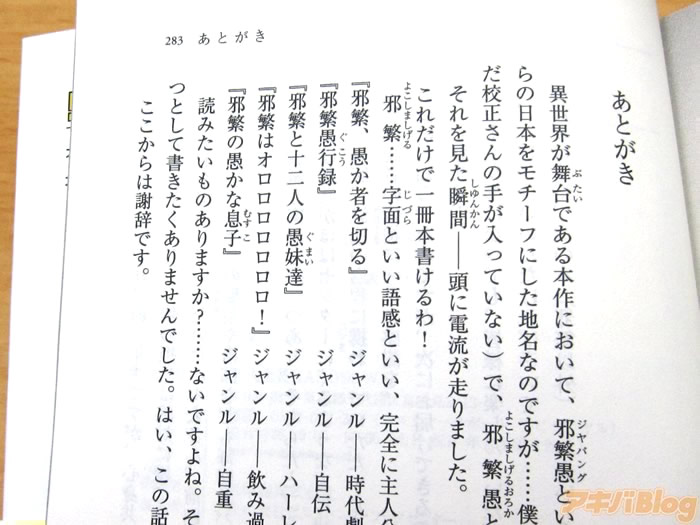 283 あとがき
あとがき
異世界が舞台である本作において、邪繁愚とい
らの日本をモチーフにした地名なのですが……僕
だ校正さんの手が入っていない）で、邪繁愚と
それを見た瞬間――頭に電流が走りました。
これだけで一冊本書けるわ！
邪繁……字面といい語感といい、完全に主人公
『邪繁、愚か者を切る』 ジャンル――時代劇
『邪繁愚行録』 ジャンル――自伝
『邪繁と十二人の愚妹達』 ジャンル――ハーレ
『邪繁はオロロロロロロ！』 ジャンル――飲み過
『邪繁の愚かな息子』 ジャンル――自重
読みたいものありますか？……ないですよね。そ
つとして書きたくありませんでした。はい、この話
ここからは謝辞です。
アキバBlog